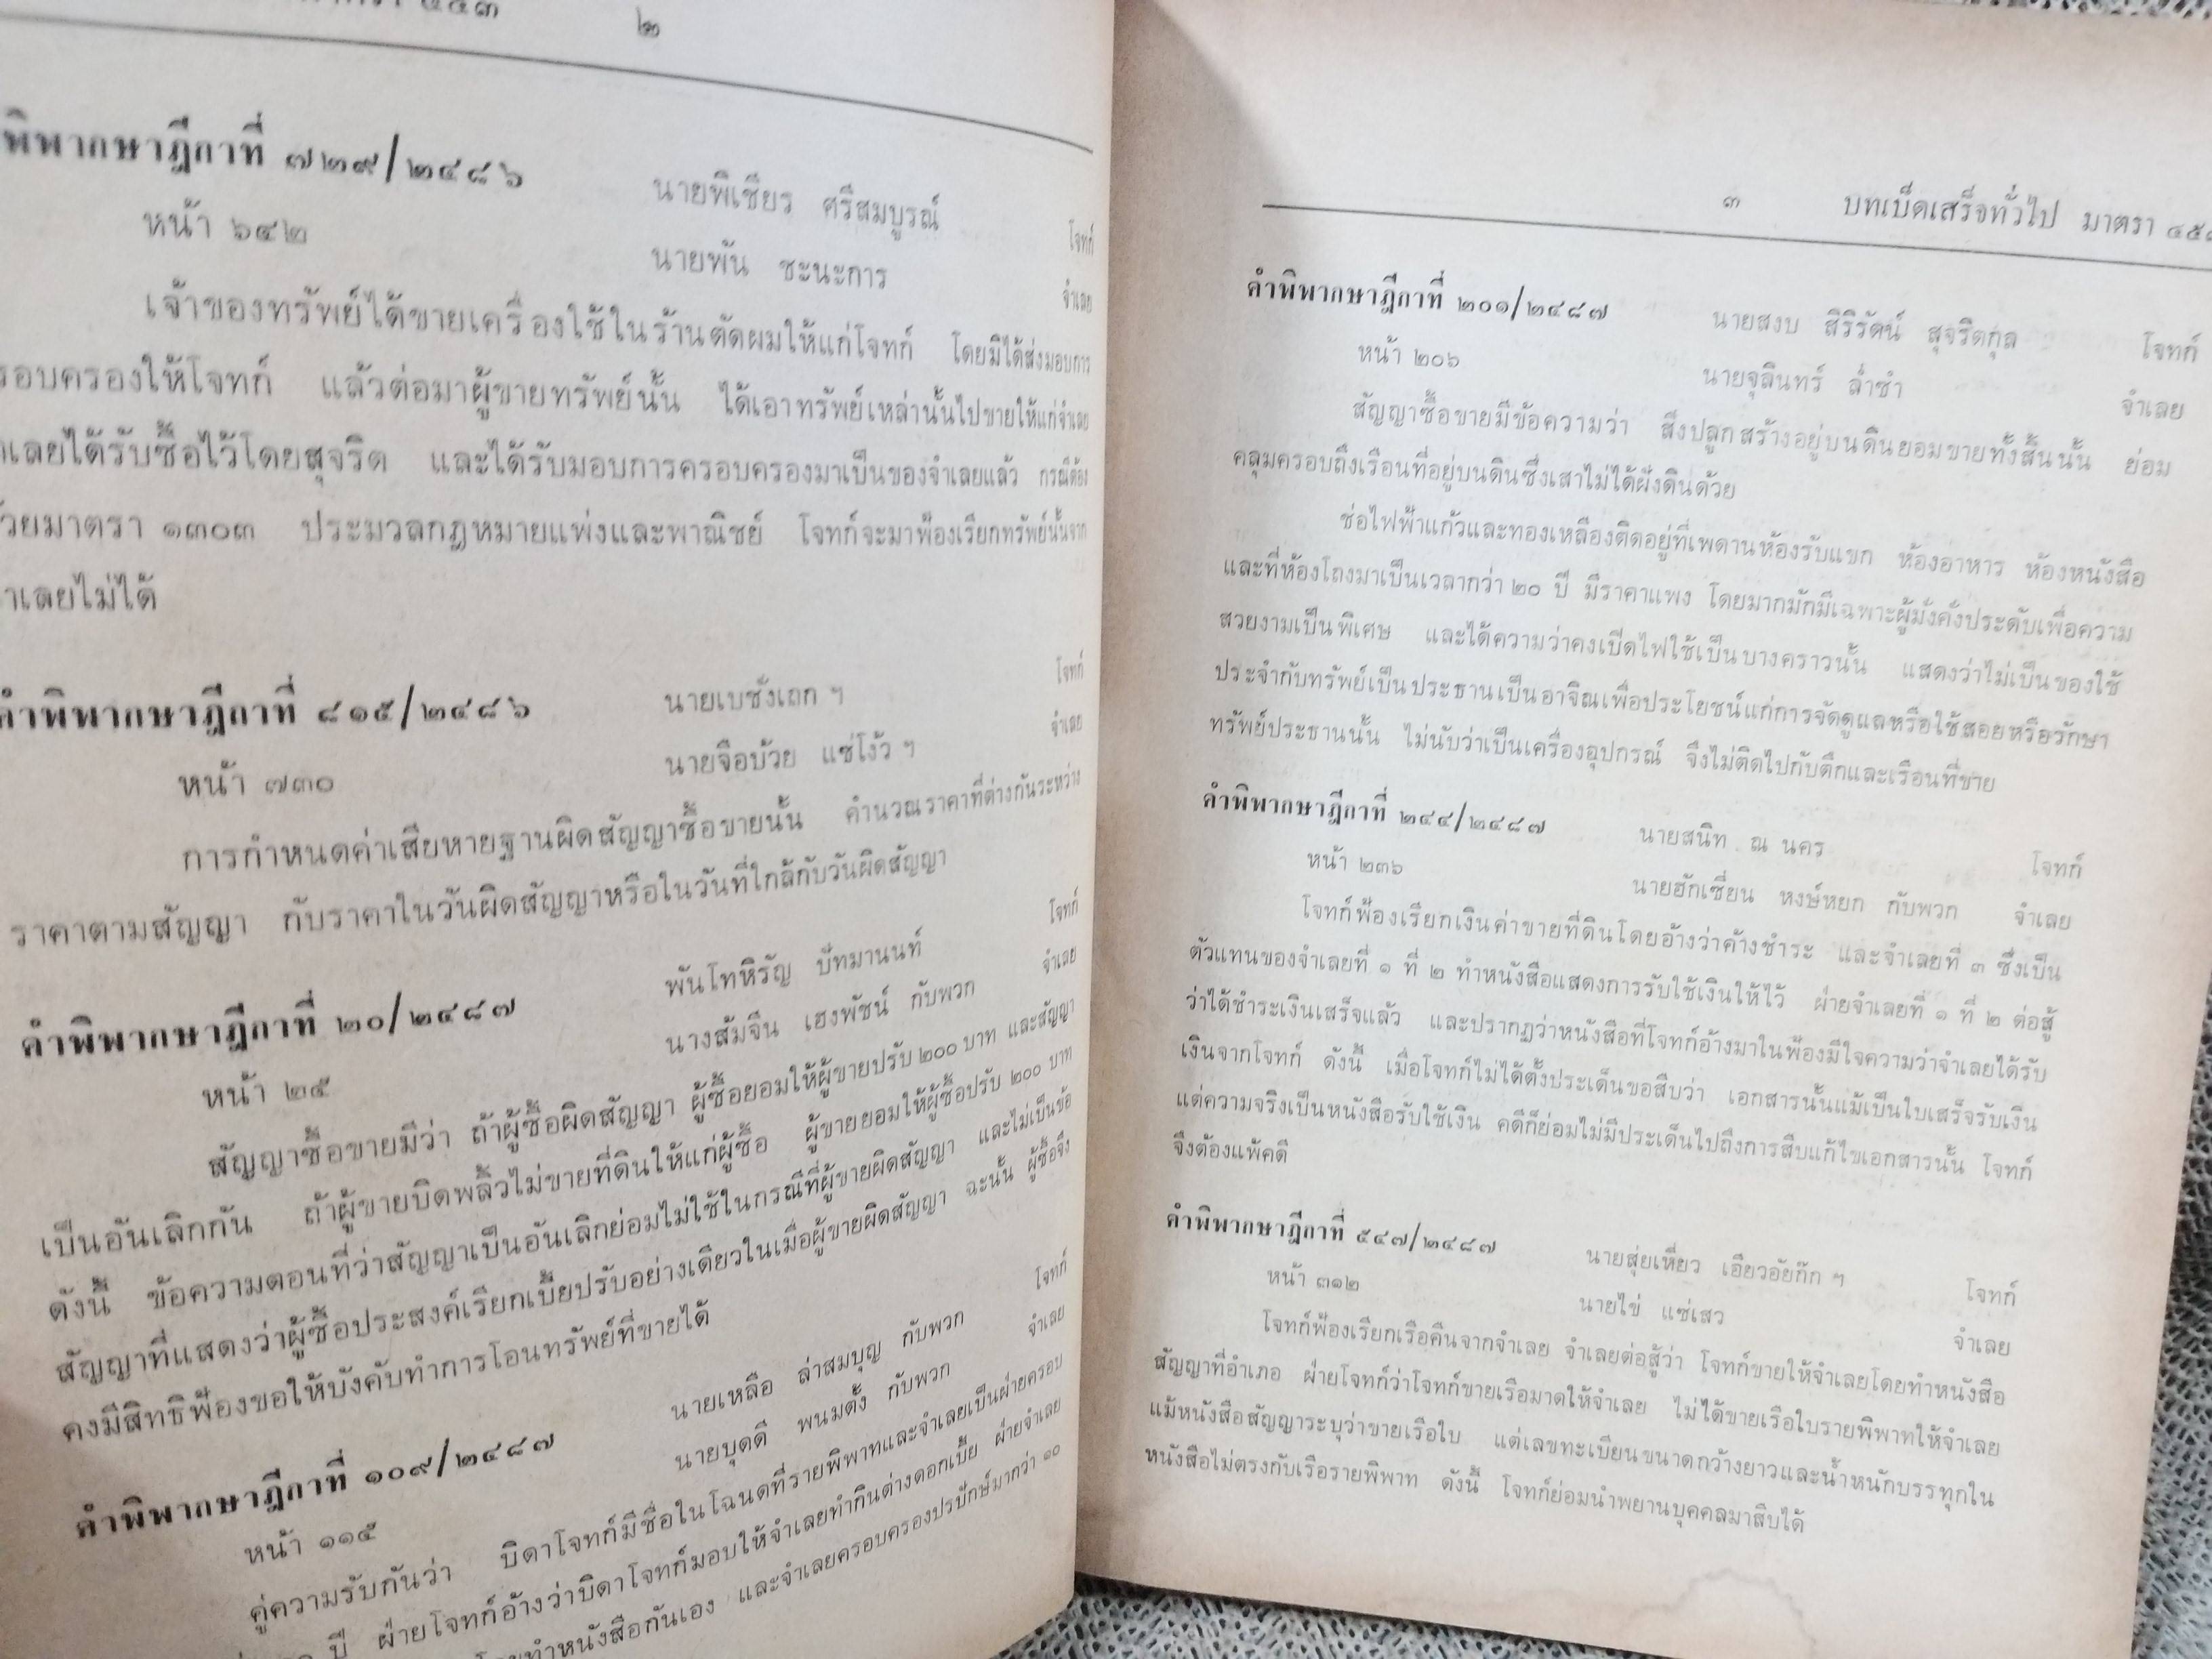 ๒
พิพากษาฎีกาที่ ๗๒๙/๒๔๘๖
นายพิเชียร ศรีสมบูรณ์ โจทก์
หน้า ๖๔๒
นายพัน ชะนะการ จำเลย
เจ้าของทรัพย์ได้ขายเครื่องใช้ในร้านตัดผมให้แก่โจทก์ โดยมิได้ส่งมอบการ
รอบครองให้โจทก์ แล้วต่อมาผู้ขายทรัพย์นั้น ได้เอาทรัพย์เหล่านั้นไปขายให้แก่จำเลย
เลยได้รับซื้อไว้โดยสุจริต และได้รับมอบการครอบครองมาเป็นของจำเลยแล้ว กรณีต้อง
วยมาตรา ๑๓๐๓ ประมวลกฎหมายแพ่งและพาณิชย์ โจทก์จะมาฟ้องเรียกทรัพย์นั้นจาก
าเลยไม่ได้
คำพิพากษาฎีกาที่ ๘๑๕/๒๔๘๖
นายเบชังเถก ฯ โจทก์
หน้า ๗๓๐
นายจือบ้วย แซ่โง้ว ฯ จำเลย
การกำหนดค่าเสียหายฐานผิดสัญญาซื้อขายนั้น คำนวณราคาที่ต่างกันระหว่าง
ราคาตามสัญญา กับราคาในวันผิดสัญญาหรือในวันที่ใกล้กับวันผิดสัญญา
คำพิพากษาฎีกาที่ ๒๐/๒๔๘๗
พันโทหิรัญ ปัทมานนท์ โจทก์
หน้า ๒๕
นางส้มจีน เฮงพัชน์ กับพวก จำเลย
สัญญาซื้อขายมีว่า ถ้าผู้ซื้อผิดสัญญา ผู้ซื้อยอมให้ผู้ขายปรับ ๒๐๐ บาท และสัญญา
เป็นอันเลิกกัน ถ้าผู้ขายบิดพลิ้วไม่ขายที่ดินให้แก่ผู้ซื้อ ผู้ขายยอมให้ผู้ซื้อปรับ ๒๐๐ บาท
ดังนี้ ข้อความตอนที่ว่าสัญญาเป็นอันเลิกย่อมไม่ใช้ในกรณีที่ผู้ขายผิดสัญญา และไม่เป็นข้อ
สัญญาที่แสดงว่าผู้ซื้อประสงค์เรียกเบี้ยปรับอย่างเดียวในเมื่อผู้ขายผิดสัญญา ฉะนั้น ผู้ซื้อจึง
คงมีสิทธิฟ้องขอให้บังคับทำการโอนทรัพย์ที่ขายได้
คำพิพากษาฎีกาที่ ๑๐๙/๒๔๘๗
นายเหลือ ล่าสมบุญ กับพวก โจทก์
หน้า ๑๑๕
นายบุดดี พนมตั้ง กับพวก จำเลย
คู่ความรับกันว่า บิดาโจทก์มีชื่อในโฉนดที่รายพิพาทและจำเลยเป็นฝ่ายครอบ
ปี ฝ่ายโจทก์อ้างว่าบิดาโจทก์มอบให้จำเลยทำกินต่างดอกเบี้ย ฝ่ายจำเลย
ทำหนังสือกันเอง และจำเลยครอบครองปรปักษ์มากว่า ๑๐
๓ บทเบ็ดเสร็จทั่วไป มาตรา
คำพิพากษาฎีกาที่ ๒๐๑/๒๔๘๗
นายสงบ สิริรัตน์ สุจริตกุล โจทก์
หน้า ๒๐๖
นายจุลินทร์ ล่ำซำ จำเลย
สัญญาซื้อขายมีข้อความว่า สิ่งปลูกสร้างอยู่บนดินยอมขายทั้งสิ้นนั้น ย่อม
คลุมครอบถึงเรือนที่อยู่บนดินซึ่งเสาไม่ได้ฝังดินด้วย
ช่อไฟฟ้าแก้วและทองเหลืองติดอยู่ที่เพดานห้องรับแขก ห้องอาหาร ห้องหนังสือ
และที่ห้องโถงมาเป็นเวลากว่า ๒๐ ปี มีราคาแพง โดยมากมักมีเฉพาะผู้มั่งคั่งประดับเพื่อความ
สวยงามเป็นพิเศษ และได้ความว่าคงเปิดไฟใช้เป็นบางคราวนั้น แสดงว่าไม่เป็นของใช้
ประจำกับทรัพย์เป็นประธานเป็นอาจิณเพื่อประโยชน์แก่การจัดดูแลหรือใช้สอยหรือรักษา
ทรัพย์ประธานนั้น ไม่นับว่าเป็นเครื่องอุปกรณ์ จึงไม่ติดไปกับตึกและเรือนที่ขาย
คำพิพากษาฎีกาที่ ๒๔๔/๒๔๘๗
นายสนิท ณ นคร โจทก์
หน้า ๒๓๖
นายฮักเซี่ยน หงษ์หยก กับพวก จำเลย
โจทก์ฟ้องเรียกเงินค่าขายที่ดินโดยอ้างว่าค้างชำระ และจำเลยที่ ๓ ซึ่งเป็น
ตัวแทนของจำเลยที่ ๑ ที่ ๒ ทำหนังสือแสดงการรับใช้เงินให้ไว้ ฝ่ายจำเลยที่ ๑ ที่ ๒ ต่อสู้
ว่าได้ชำระเงินเสร็จแล้ว และปรากฏว่าหนังสือที่โจทก์อ้างมาในฟ้องมีใจความว่าจำเลยได้รับ
เงินจากโจทก์ ดังนี้ เมื่อโจทก์ไม่ได้ตั้งประเด็นขอสืบว่า เอกสารนั้นแม้เป็นใบเสร็จรับเงิน
แต่ความจริงเป็นหนังสือรับใช้เงิน คดีก็ย่อมไม่มีประเด็นไปถึงการสืบแก้ไขเอกสารนั้น โจทก์
จึงต้องแพ้คดี
คำพิพากษาฎีกาที่ ๕๔๗/๒๔๘๗
นายสุ่ยเหี่ยว เอียวอัยก๊ก ฯ โจทก์
หน้า ๓๑๒
นายไข่ แซ่เสว จำเลย
โจทก์ฟ้องเรียกเรือคืนจากจำเลย จำเลยต่อสู้ว่า โจทก์ขายให้จำเลยโดยทำหนังสือ
สัญญาที่อำเภอ ฝ่ายโจทก์ว่าโจทก์ขายเรือมาดให้จำเลย ไม่ได้ขายเรือใบรายพิพาทให้จำเลย
แม้หนังสือสัญญาระบุว่าขายเรือใบ แต่เลขทะเบียนขนาดกว้างยาวและน้ำหนักบรรทุกใน
หนังสือไม่ตรงกับเรือรายพิพาท ดังนี้ โจทก์ย่อมนำพยานบุคคลมาสืบได้